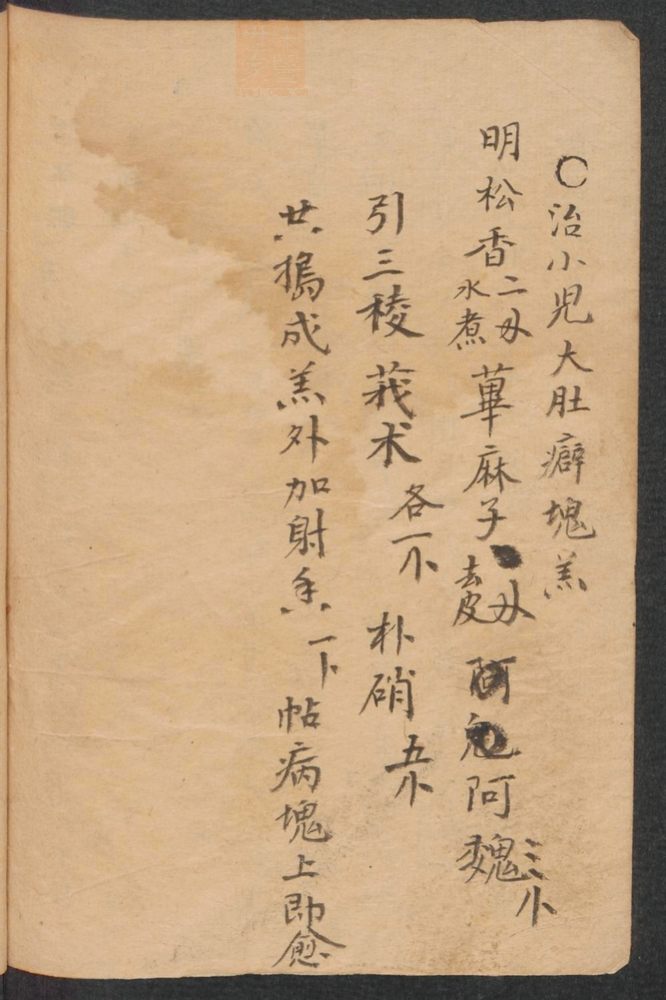 〇治小児大肚癖塊羔
明松香二刄水煮萆麻子刄去皮阿魏三小
引三稜莪术各一小朴硝五小
共搗成羔外加射香一卜帖病塊上即愈